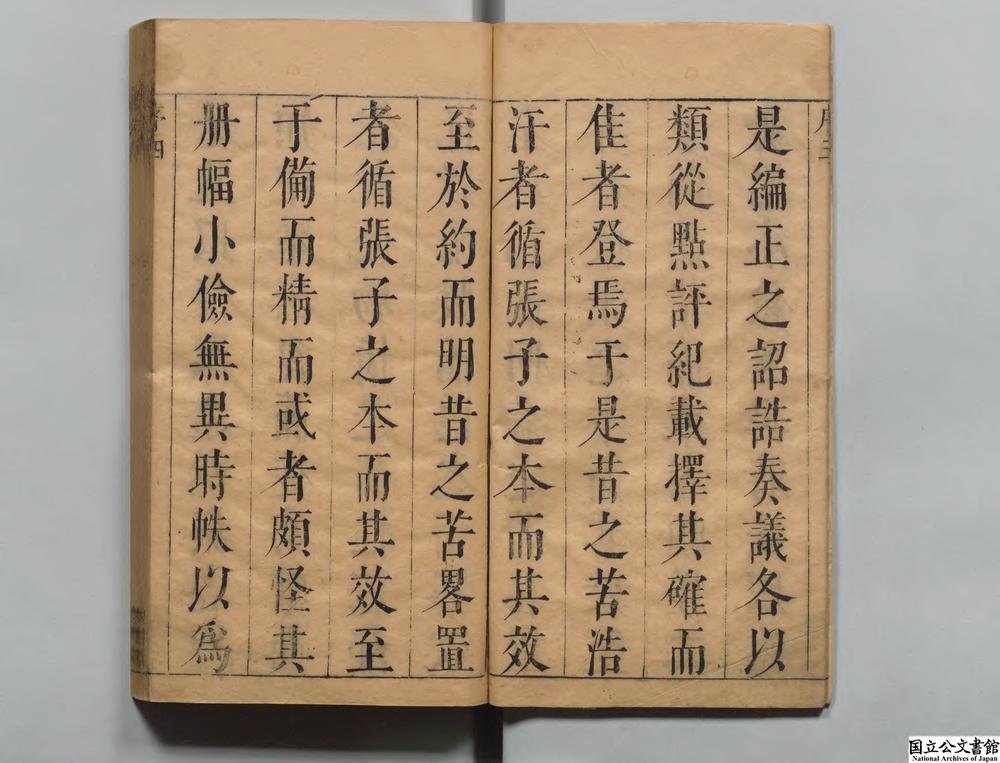 是編正之詔誥奏議各以
類從點評紀載擇其確而
隹者登焉于是昔之苦浩
汗者循張子之本而其效
至於約而明昔之苦畧置
者循張子之本而其效至
于備而精而或者頗怪其
册幅小儉無異時帙以爲
序四
国立公文書館
National Archives of Japan